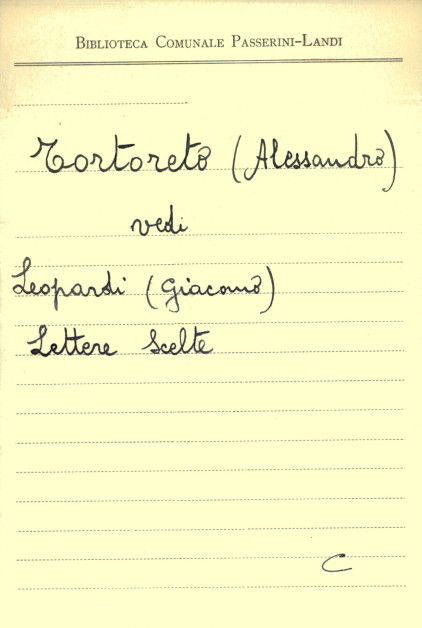 Biblioteca Comunale Passerini-Landi
Tortoreto (Alessandro)
vedi
Leopardi (Giacomo)
Lettere Scelte
C